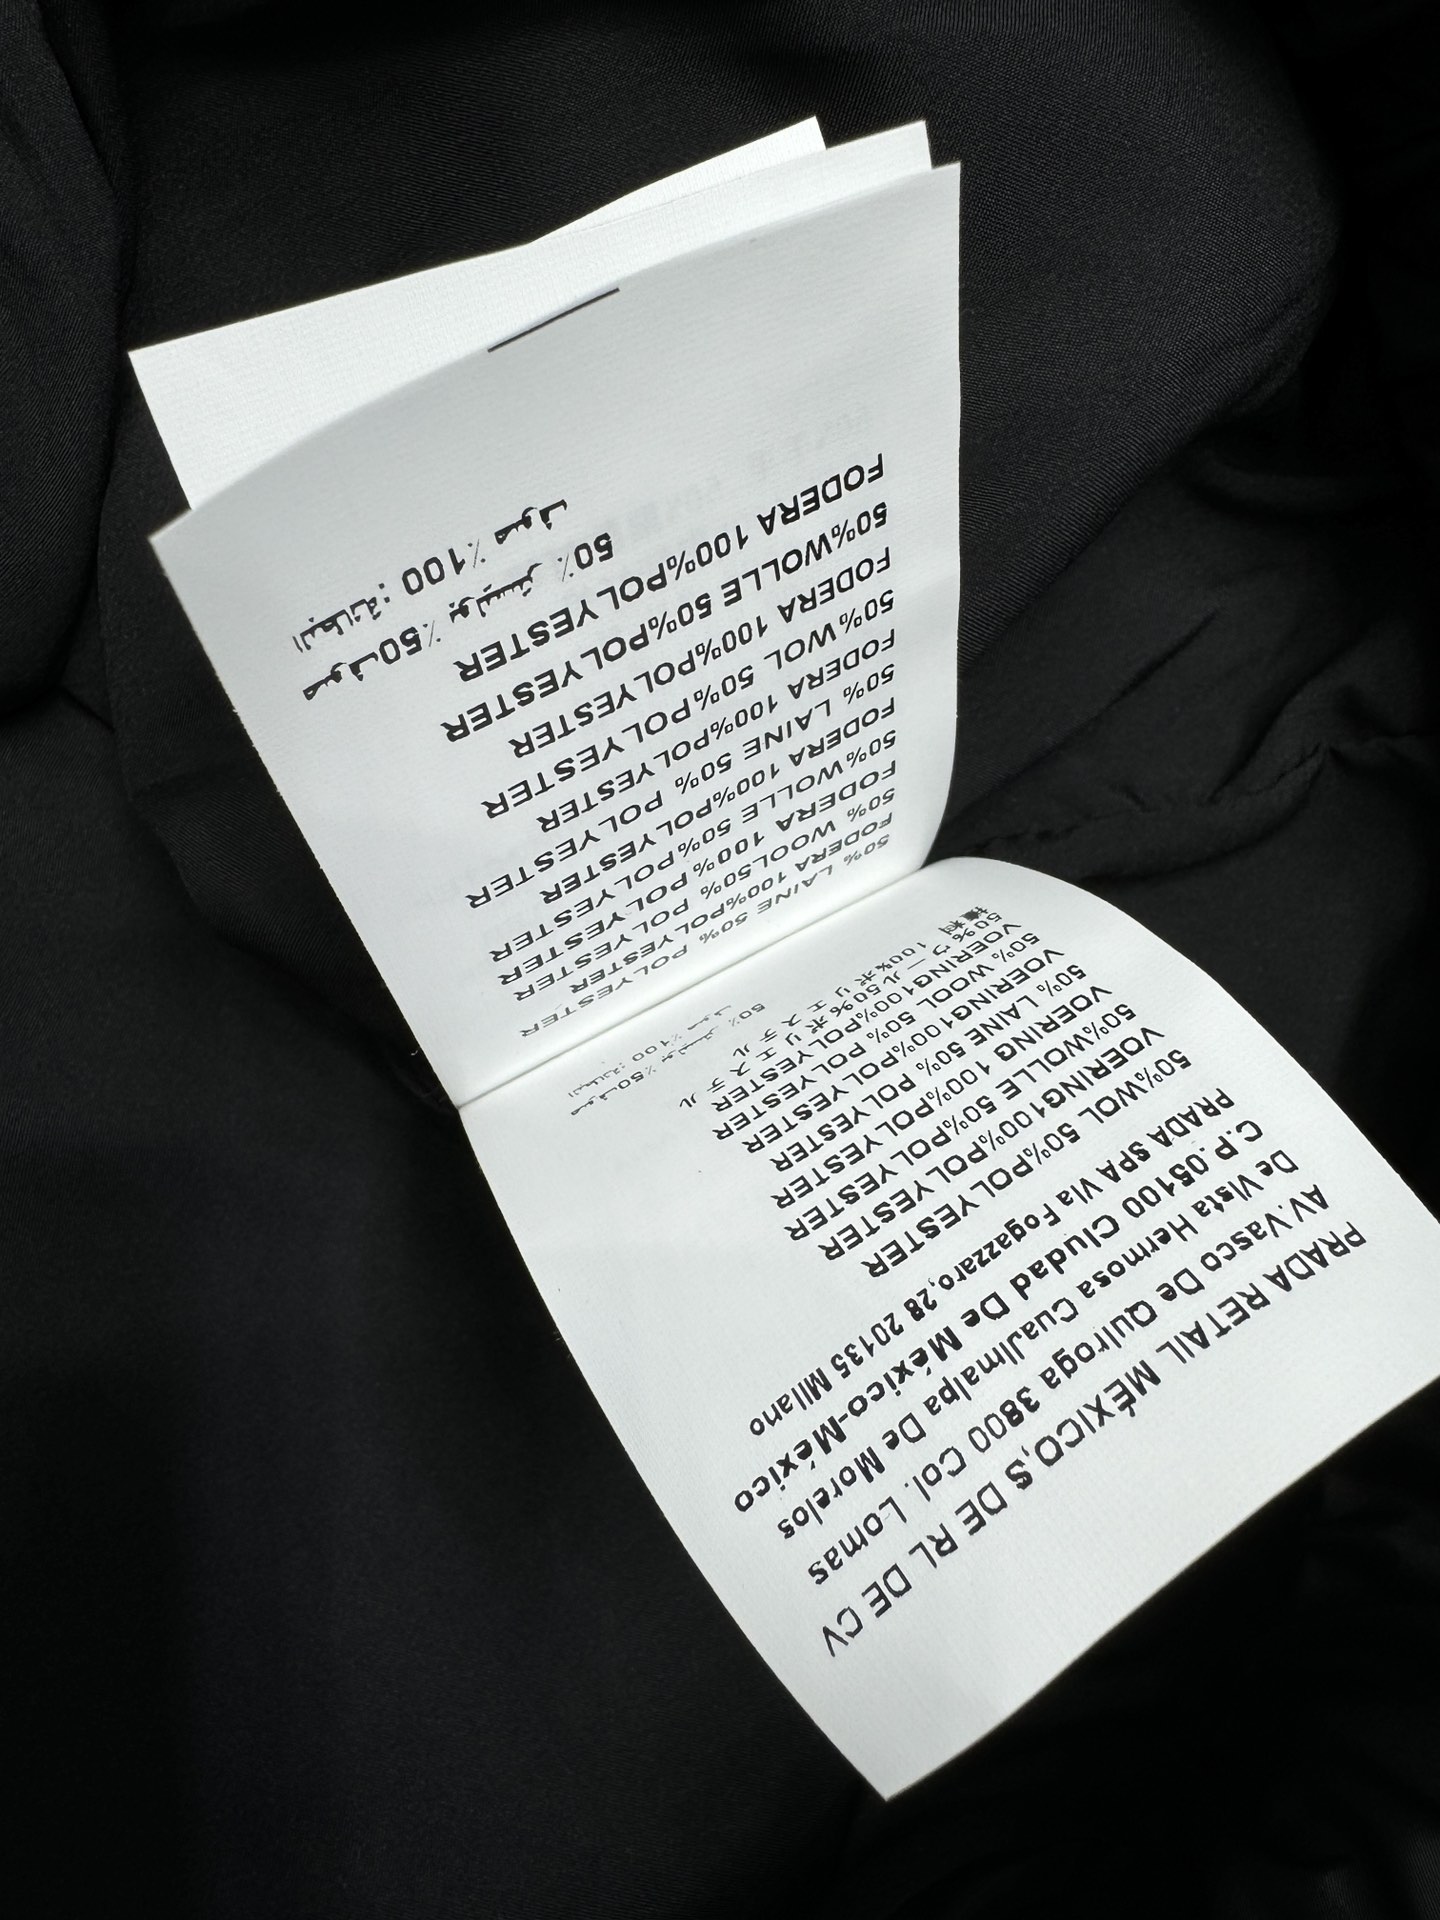 PRADA RETAIL MÉXICO,S DE RL DE CV
AV.Vasco De Quiroga 3800 Col. Lomas
De Vista Hermosa Cuajimalpa De Morelos
C.P.05100 Ciudad De México-México
PRADA SPA Via Fogazzaro,28 20135 Milano
50%WOL 50%POLYESTER
VOERING100%POLYESTER
50%WOLLE 50%POLYESTER
VOERING 100%POLYESTER
50% LAINE 50% POLYESTER
VOERING100%POLYESTER
50% WOOL 50% POLYESTER
VOERING100%POLYESTER
50%ウール50%ポリエステル
100%ポリエステル
صوف50٪ بوليستر 50٪
البطانة: 100٪ صوف
50% LAINE 50% POLYESTER
FODERA 100%POLYESTER
50% WOOL50% POLYESTER
FODERA 100% POLYESTER
50%WOLLE 50%POLYESTER
FODERA 100%POLYESTER
50% LAINE 50% POLYESTER
FODERA 100%POLYESTER
50%WOL 50%POLYESTER
FODERA 100%POLYESTER
50%WOLLE 50%POLYESTER
FODERA 100%POLYESTER
صوف50٪ بوليستر 50٪
البطانة: 100٪ صوف